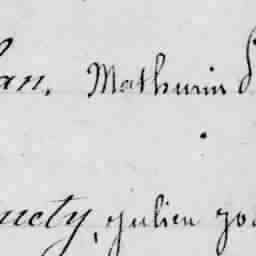 an. Mathurin
uety, julien